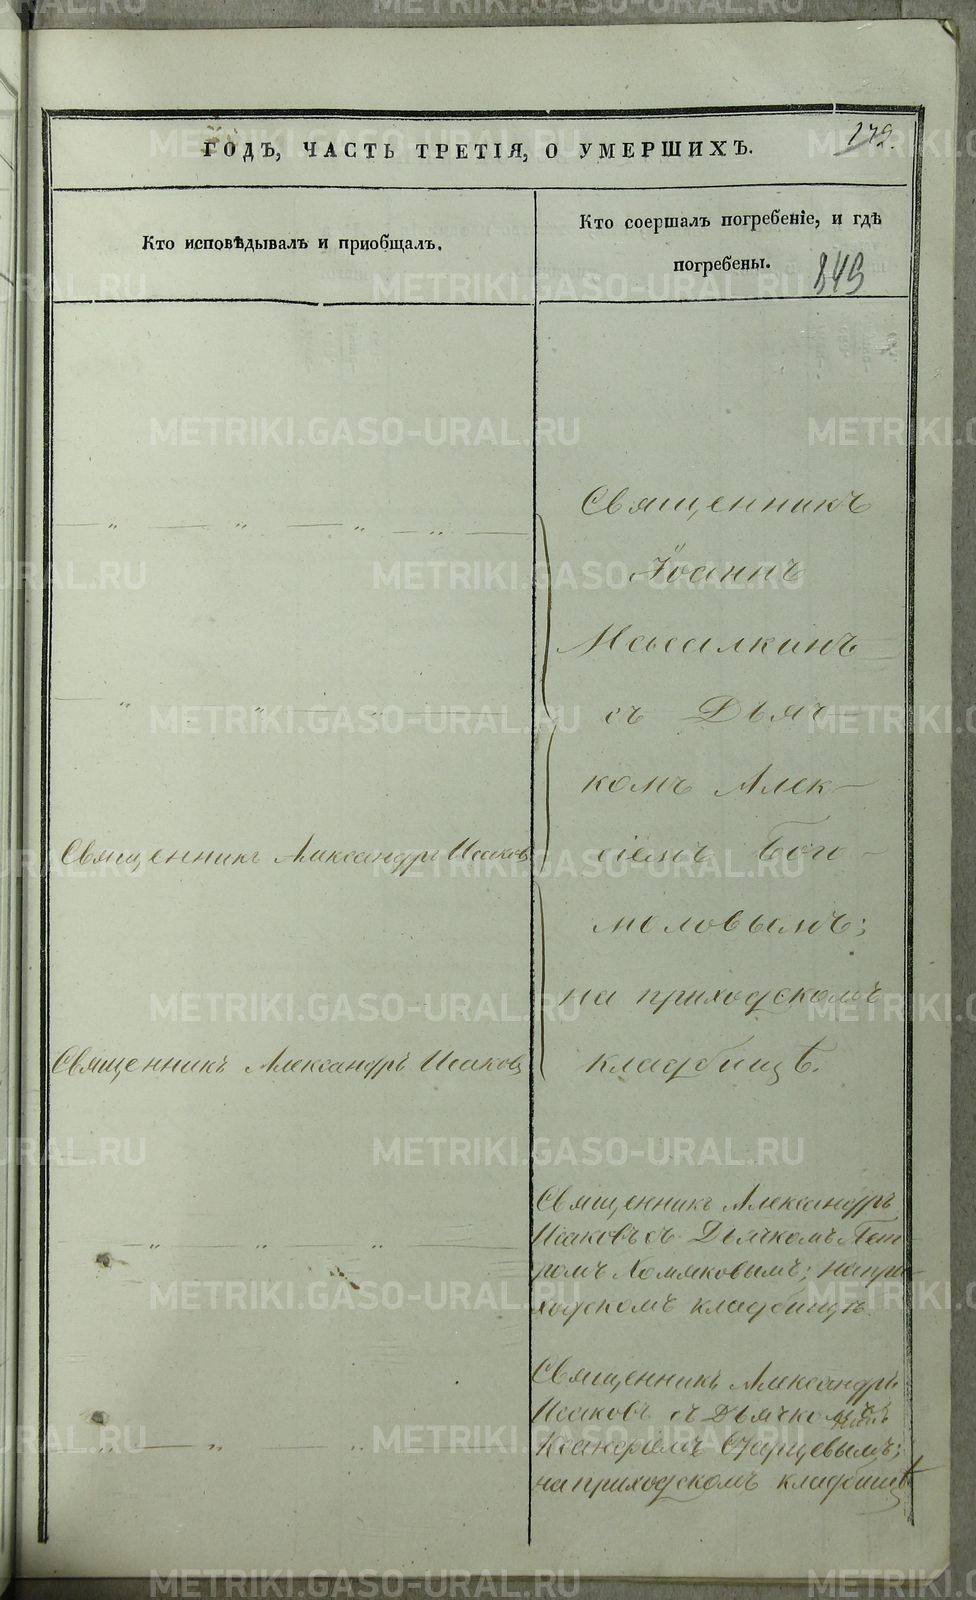 179.
ГОДЪ, ЧАСТЬ ТРЕТІЯ, О УМЕРШИХЪ.
Кто исповѣдывалъ и пріобщалъ.
Кто соершалъ погребеніе, и гдѣ
погребены.
849
Священникъ
Іоаннъ
Мысалкинъ
съ Дьяч-
комъ Алек-
сіемъ Бого-
моловымъ;
на приходскомъ
кладбищѣ.
Священникъ Александръ Исаковъ
Священникъ Александръ Исаковъ
Священникъ Александръ
Исаковъ съ Дьячкомъ Пет-
ромъ Хомяковымъ; на при-
ходскомъ кладбищѣ.
Священникъ Александръ
Исаковъ съ Дьячкомъ
Старцевымъ;
на приходскомъ кладбищѣ
METRIKI.GASO-URAL.RU